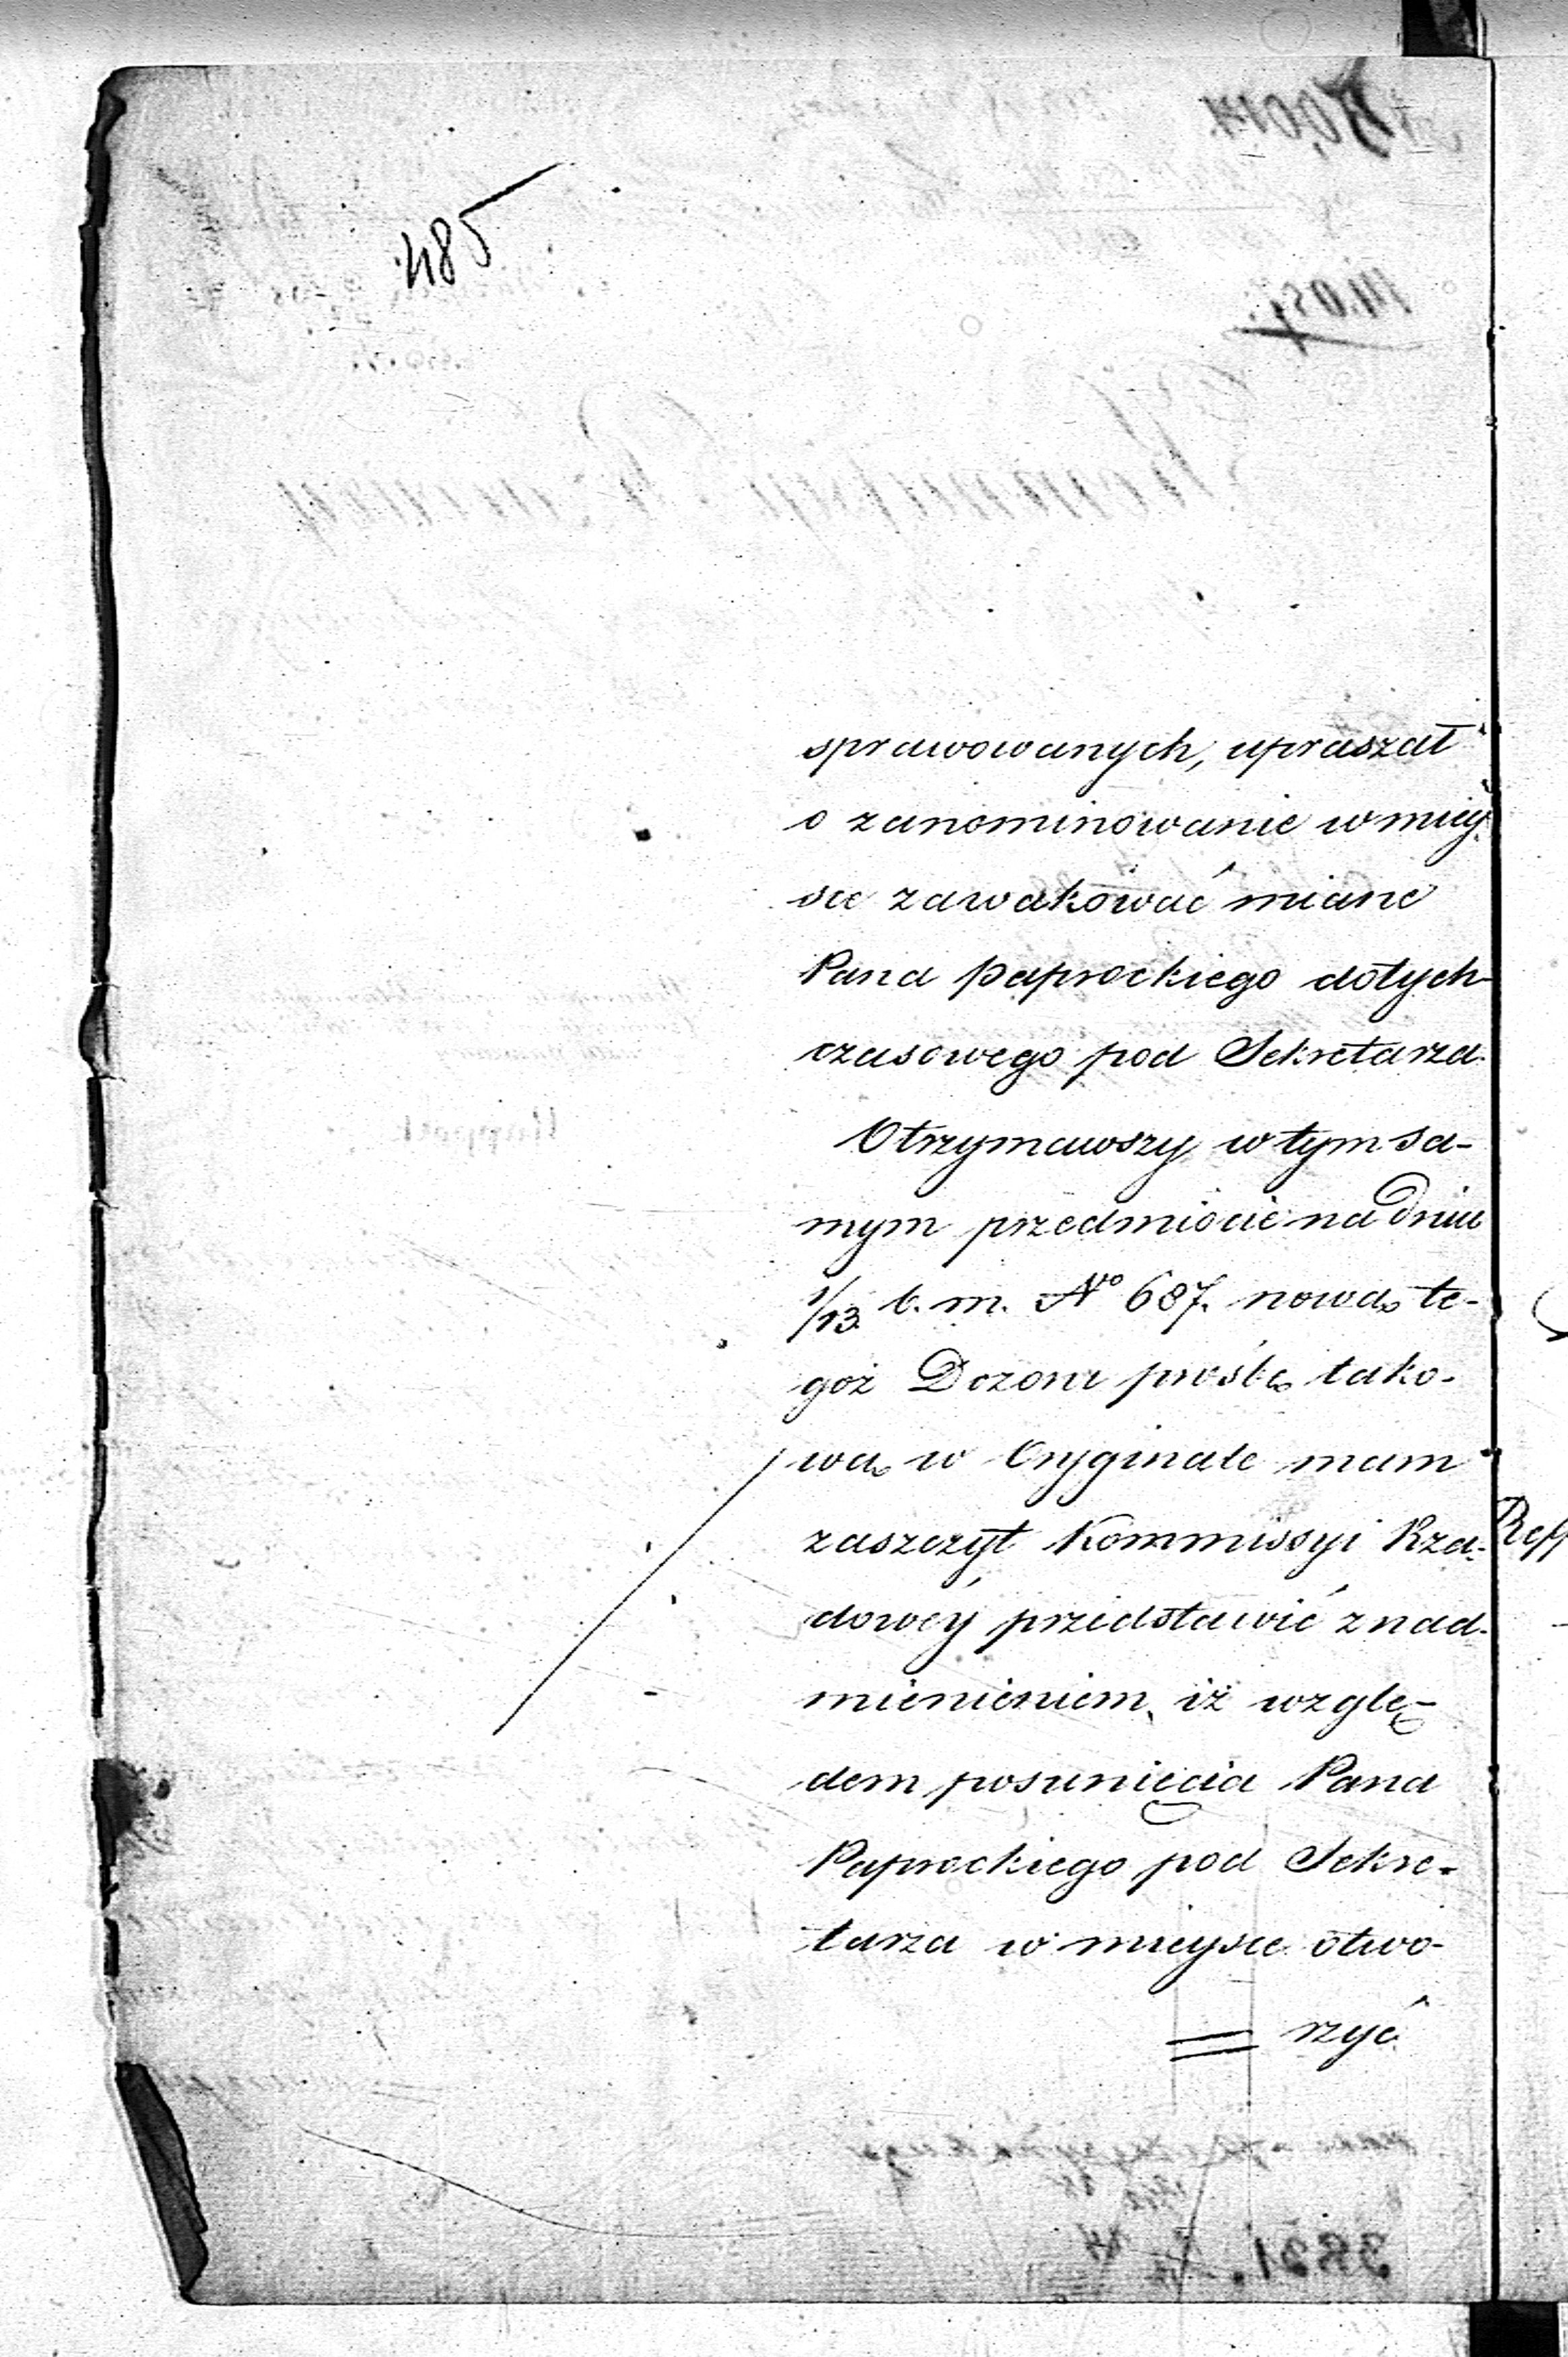 485
sprawowanych, upraszał
o zanominowanie w miey-
sce zawakować miane
Pana Paprockiego dotych-
czasowego pod Sekretarza.
Otrzymawszy w tym sa-
mym przedmiocie na dniu
1/13 b. m. No 687. nową te-
goż Dozoru prośbę tako-
wą w Oryginale mam
zaszczyt Kommissyi Rzą-
dowéy przedstawić z nad-
mienieniem, iż wzglę-
dem posunięcia Pana
Paprockiego pod Sekre-
tarza w mieysce otwo-
rzyć